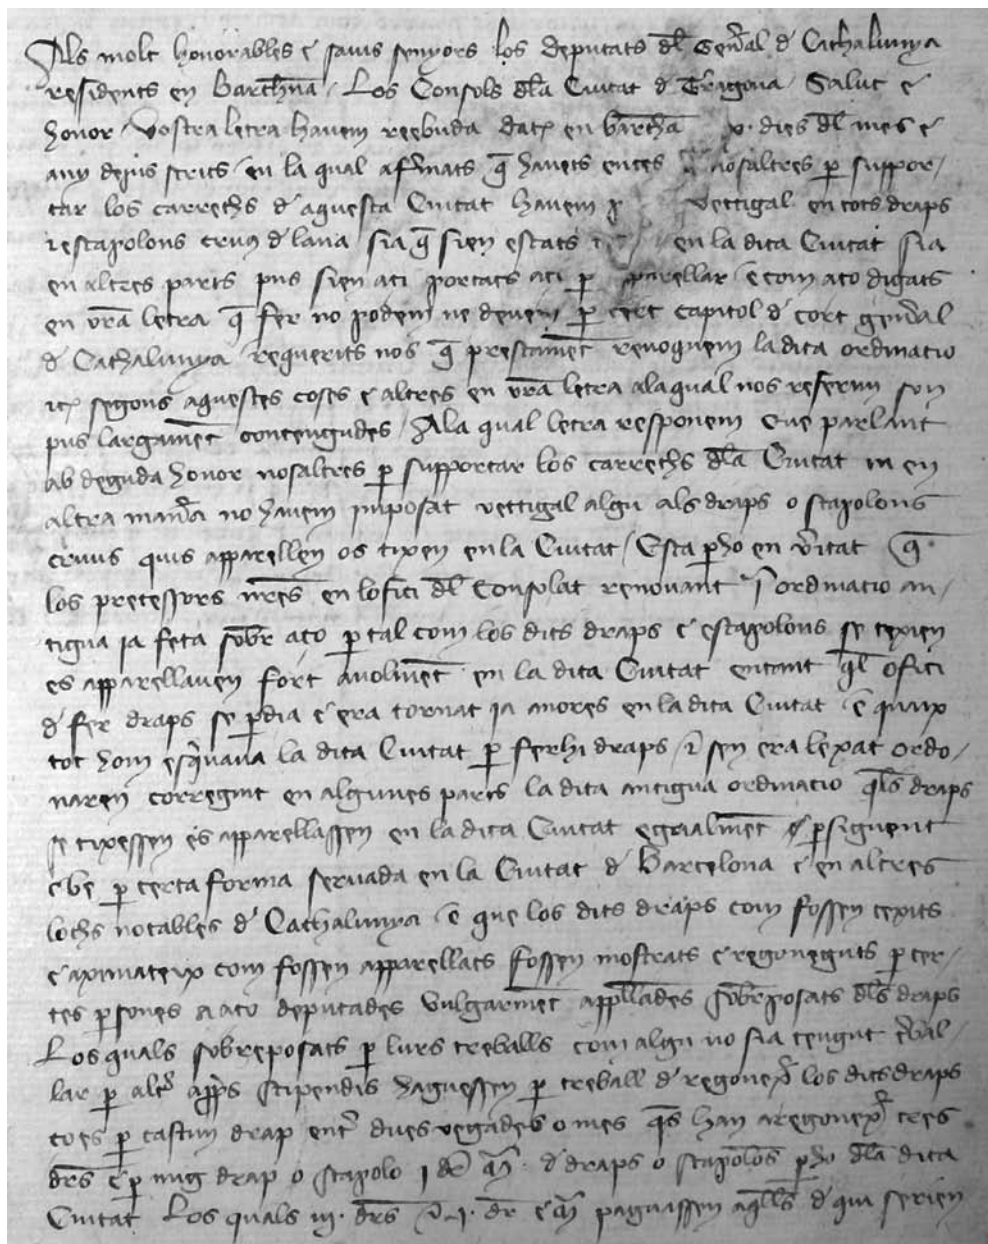 Als molt honorables e savis senyors los deputats dl Gen̄al d Cathalunya
residents en Barchn̄a / Los Consols dla Ciutat d Tr̄agona / Salut e
honor / Vostra letra havem reebuda dat̄ en barchā x· dies dl mes e
any dejus scrits / en la qual afr̄mats q̄ havets entes q̄ nosaltres p̄ suppor/
tar los carrechs d aquesta Ciutat havem vectigal en tots draps
e stapolons cruus d lana sia q̄ sien estats en la dita Ciutat sia
en altres parts pus sien aci portats aci p̄ apparellar / e com aço digats
en vr̄a letra q̄ fer no podem ne devem p̄ cert capitol d cort gen̄al
d Cathalunya requerits nos q̄ prestamēt revoquem la dita ordinacio
segons aquestes coses e altres en vr̄a letra ala qual nos referim son
pus largamēt contengudes / Ala qual letra responem Que parlant
ab deguda honor nosaltres p̄ supportar los carrechs dla Ciutat ni en
altra man̄a no havem imposat vectigal algu als draps o stapolons
cruus quis apparellen os tixen en la Ciutat / Esta p̄ho en v̄itat q̄
los predessors nr̄es en lofici dl Consolat renovant j̄ ordinacio an/
tigua ja feta sobr̄ aço p̄ tal com los dits draps e estapolons se texien
es apparellaven fort avolmēt en la dita Ciutat entant ql̄ ofici
d fer draps se p̄dia e era tornat ja anores en la dita Ciutat / e quaix
tot hom esq̄vava la dita Ciutat p̄ ferhi draps sen era lexat ordo/
naren corregint en algunes parts la dita antigua ordinacio qls̄ draps
se tixessen es apparellassen en la dita Ciutat egualmēt p̄siguent
e be p̄ certa forma servada en la Ciutat d Barcelona e en altres
lochs notables d Cathalunya / e que los dits draps com fossen texits
e aximateix com fossen apparellats fossen mostrats e regoneguts p̄ cer/
tes p̄sones a aço deputades vulgarmēt appllades sobr̄posats dls draps
Los quals sobreposats p̄ lurs treballs com algu no sia tengut tr̄bal/
lar p̄ altr̄ a pp̄s stipendis haguessen p̄ treball d regonex̄ los dits draps
ço es p̄ cascun drap entr̄ dues vegades o mes q̄s han a regonex̄ tres
drs̄ e p̄ mig drap o stapolo j dr̄ d draps o stapolons p̄ho dla dita
Ciutat Los quals iij· drs̄ j· dr̄ e paguassen aqlls̄ d qui serien